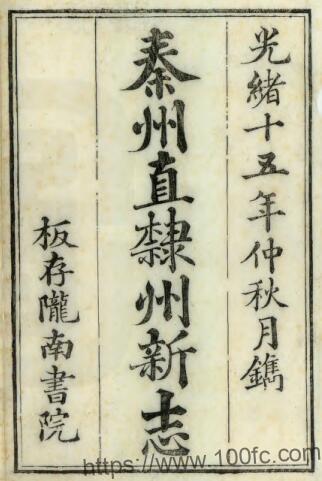 光緒十五年仲秋月鐫
秦州直隸州新志
板存隴南書院
https://www.100fc.com